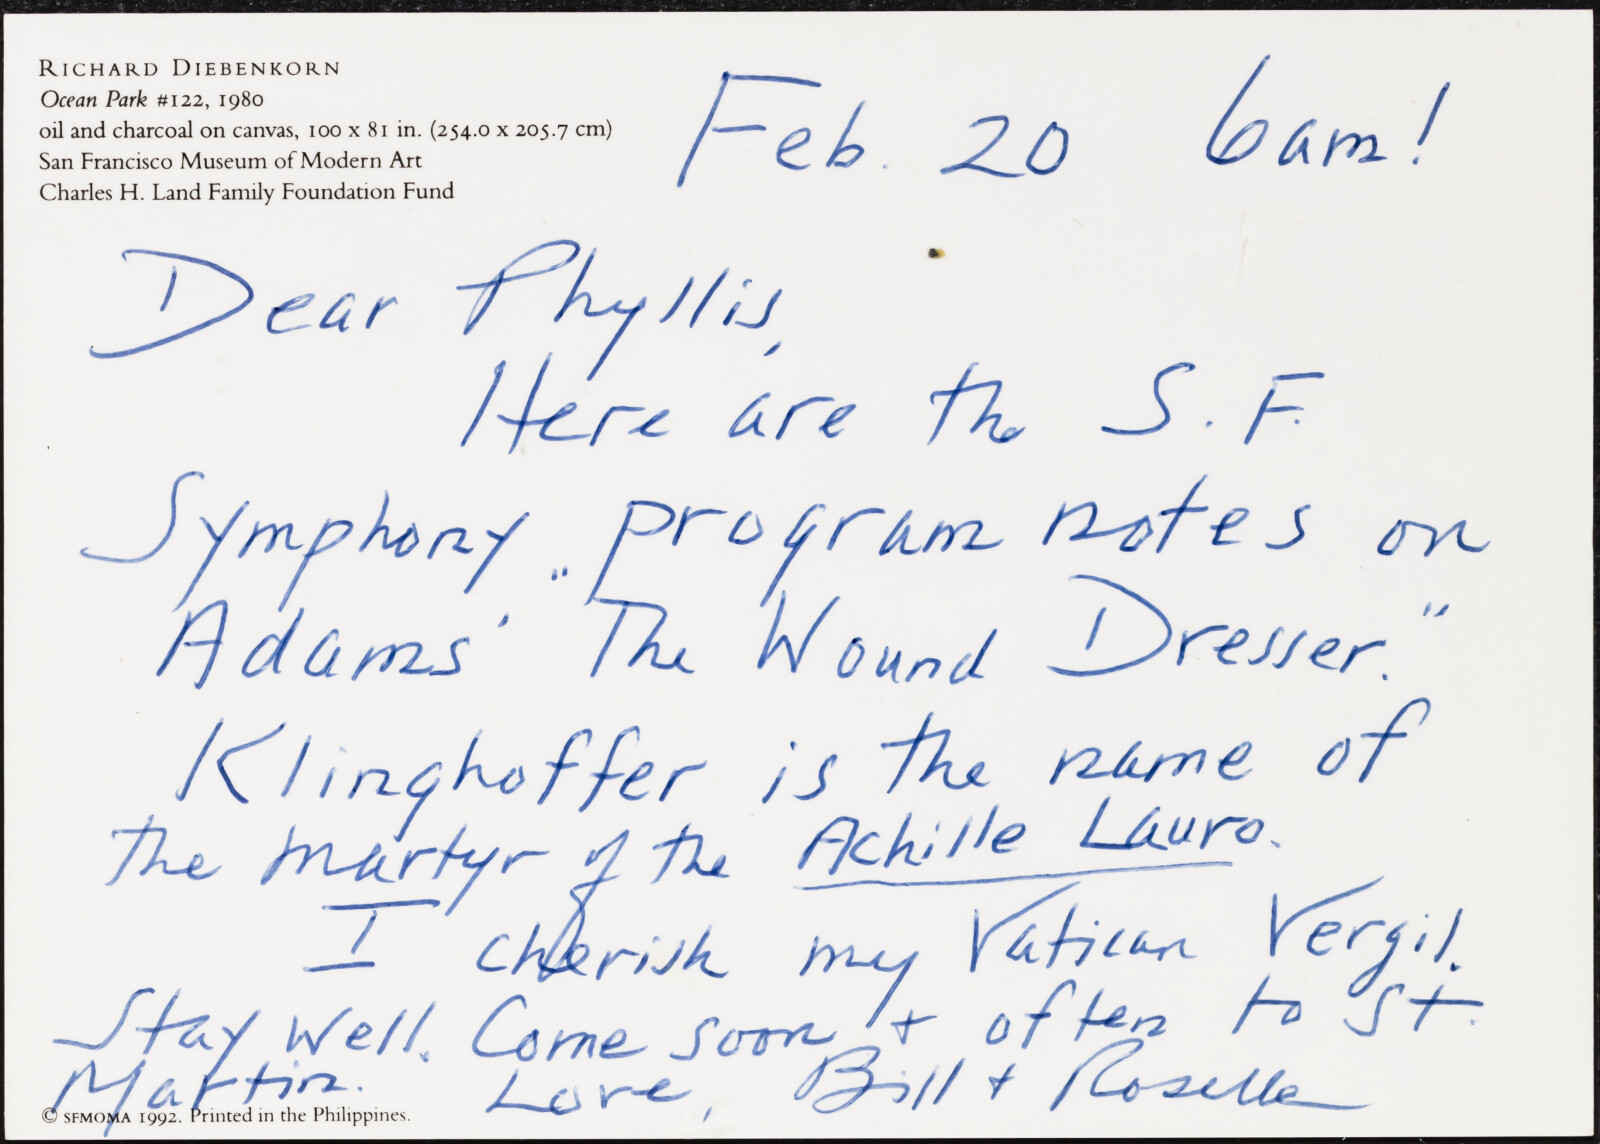 RICHARD DIEBENKORN
Ocean Park #122, 1980
oil and charcoal on canvas, 100 x 81 in. (254.0 x 205.7 cm)
San Francisco Museum of Modern Art
Charles H. Land Family Foundation Fund
Feb. 20 6am!
Dear Phyllis,
Here are the S.F.
Symphony program notes on
Adams' "The Wound Dresser."
Klinghoffer is the name of
the martyr of the Achille Lauro.
I cherish my Vatican Vergil.
Stay well. Come soon + often to St.
Martin. Love, Bill + Roselle
© SFMOMA 1992. Printed in the Philippines.